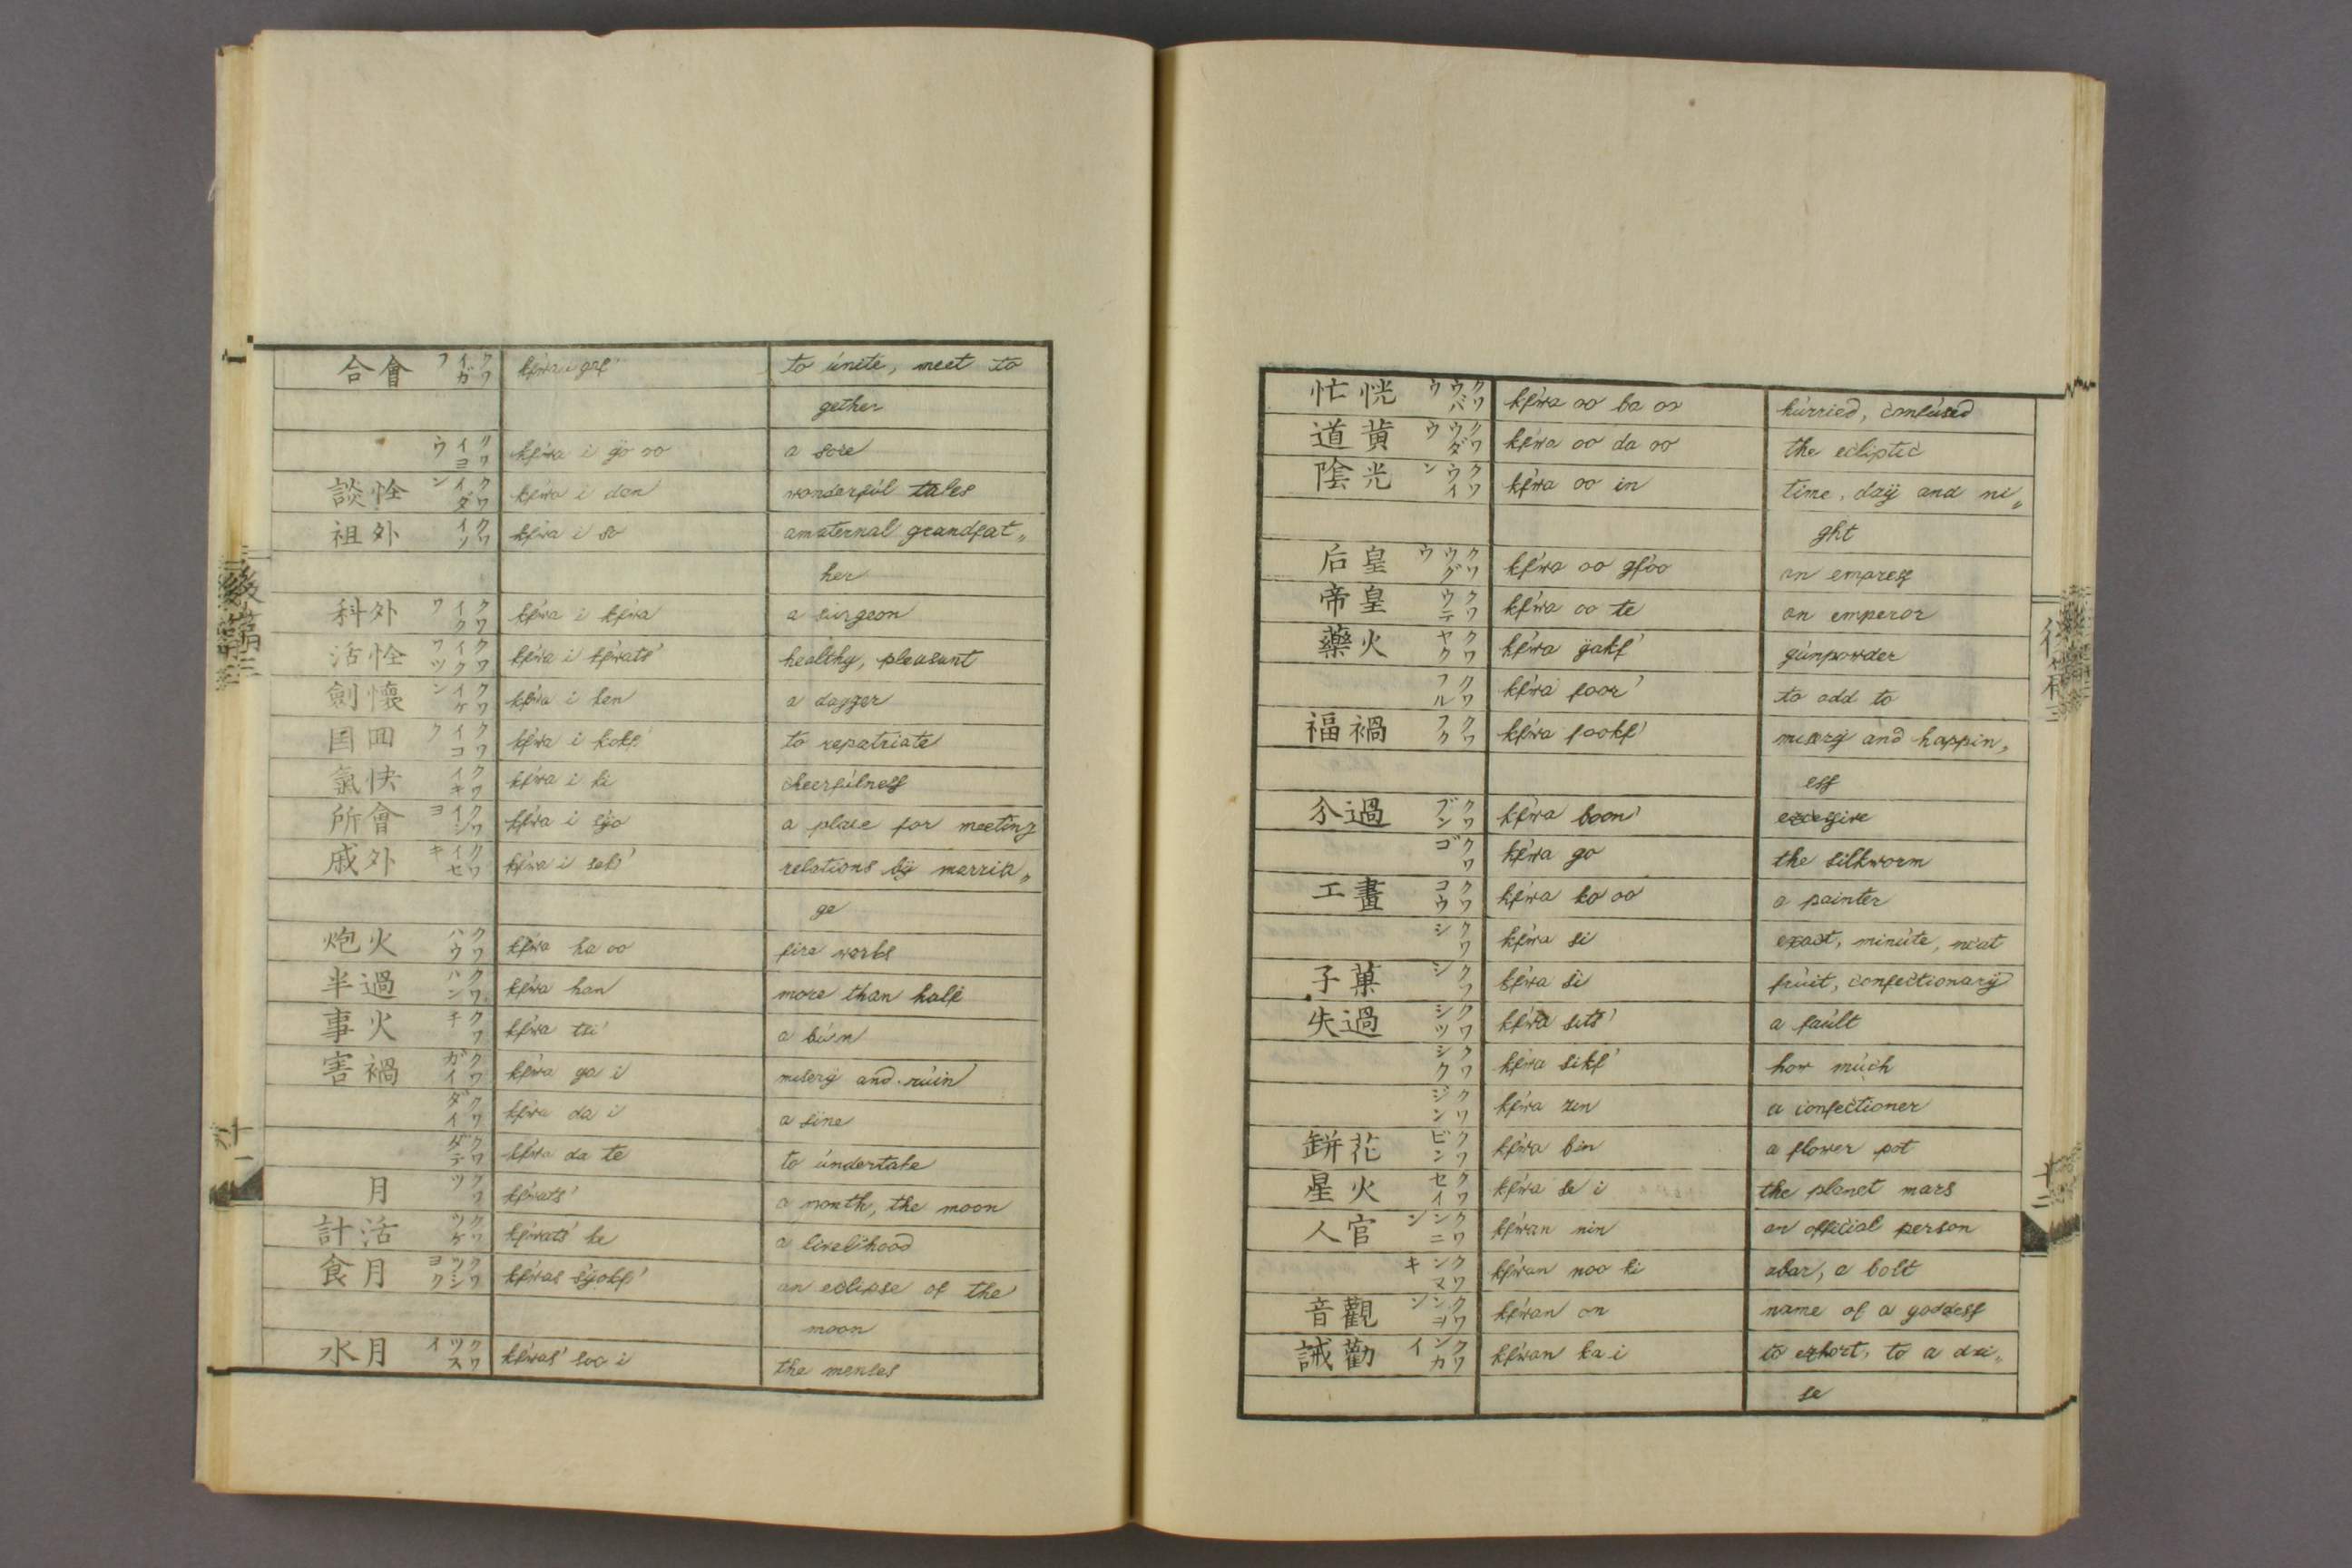 合會 クワイガフ kfwa i gaf' to únite, meet to
gether
クワイヨウ kfwa i yo oo a sore
談恠 クワイダン kfwa i dan wonderfúl tales
祖外 クワイソ kfwa i so amaternal grandfat〃
her
科外 クワイクワ kfwa i kfwa a súrgeon
活恠 クワイクワツ kfwa i kfwats' healthy, pleasant
劍懷 クワイケン kfwa i ken a dagger
国囬 クワイコク kfwa i kokf' to repatriate
氣快 クワイキ kfwa i ki cheerfúlness
所會 クワイシヨ kfwa i sÿo a place for meeting
戚外 クワイセキ kfwa i seki' relations bÿ marria〃
ge
炮火 クワハウ kfwa ha oo fire works
半過 クワハン kfwa han more than half
事火 クワチ kfwa tsi' a bú'n
害禍 クワガイ kfwa ga i miserÿ and rúin
クワダイ kfwa da i a fine
クワダテ kfwa da te to úndertake
月 クワツ kfwats' a month, the moon
計活 クワツケ kfwats' ke a livelihood
食月 クワツシヨク kfwas sÿokf' an eclipse of the
moon
水月 クワツスイ kfwas' soo i the menses
後篇三
十一
忙恍 クワウバウ kfwa oo ba oo húrried, confúsed
道黄 クワウダウ kfwa oo da oo the ecliptic
陰光 クワウイン kfwa oo in time, daÿ and ni〃
ght
后皇 クワウグウ kfwa oo gfoo an empress
帝皇 クワウテ kfwa oo te an emperor
藥火 クワヤク kfwa ÿakf' gúnpowder
クワフル kfwa foor' to add to
福禍 クワフク kfwa fookf' miserÿ and happin〃
ess
分過 クワブン kfwa boon' excessive
クワゴ kfwa go the silkworm
工畫 クワコウ kfwa ko oo a painter
クワシ kfwa si exact, minúte, neat
子菓 クワシ kfwa si frúit, confectionarÿ
失過 クワシツ kfwa sits' a faúlt
クワシク kfwa sikf' how múch
クワジン kfwa zin a confectioner
缾花 クワビン kfwa bin a flower pot
星火 クワセイ kfwa se i the planet mars
人官 クワンニン kfwan nin an official person
クワンヌキ kfwan noo ki abar, a bolt
音觀 クワンヲン kfwan on name of a goddess
誡勸 クワンカイ kfwan ka i to exhort, to a dvi〃
se
後篇三
十二